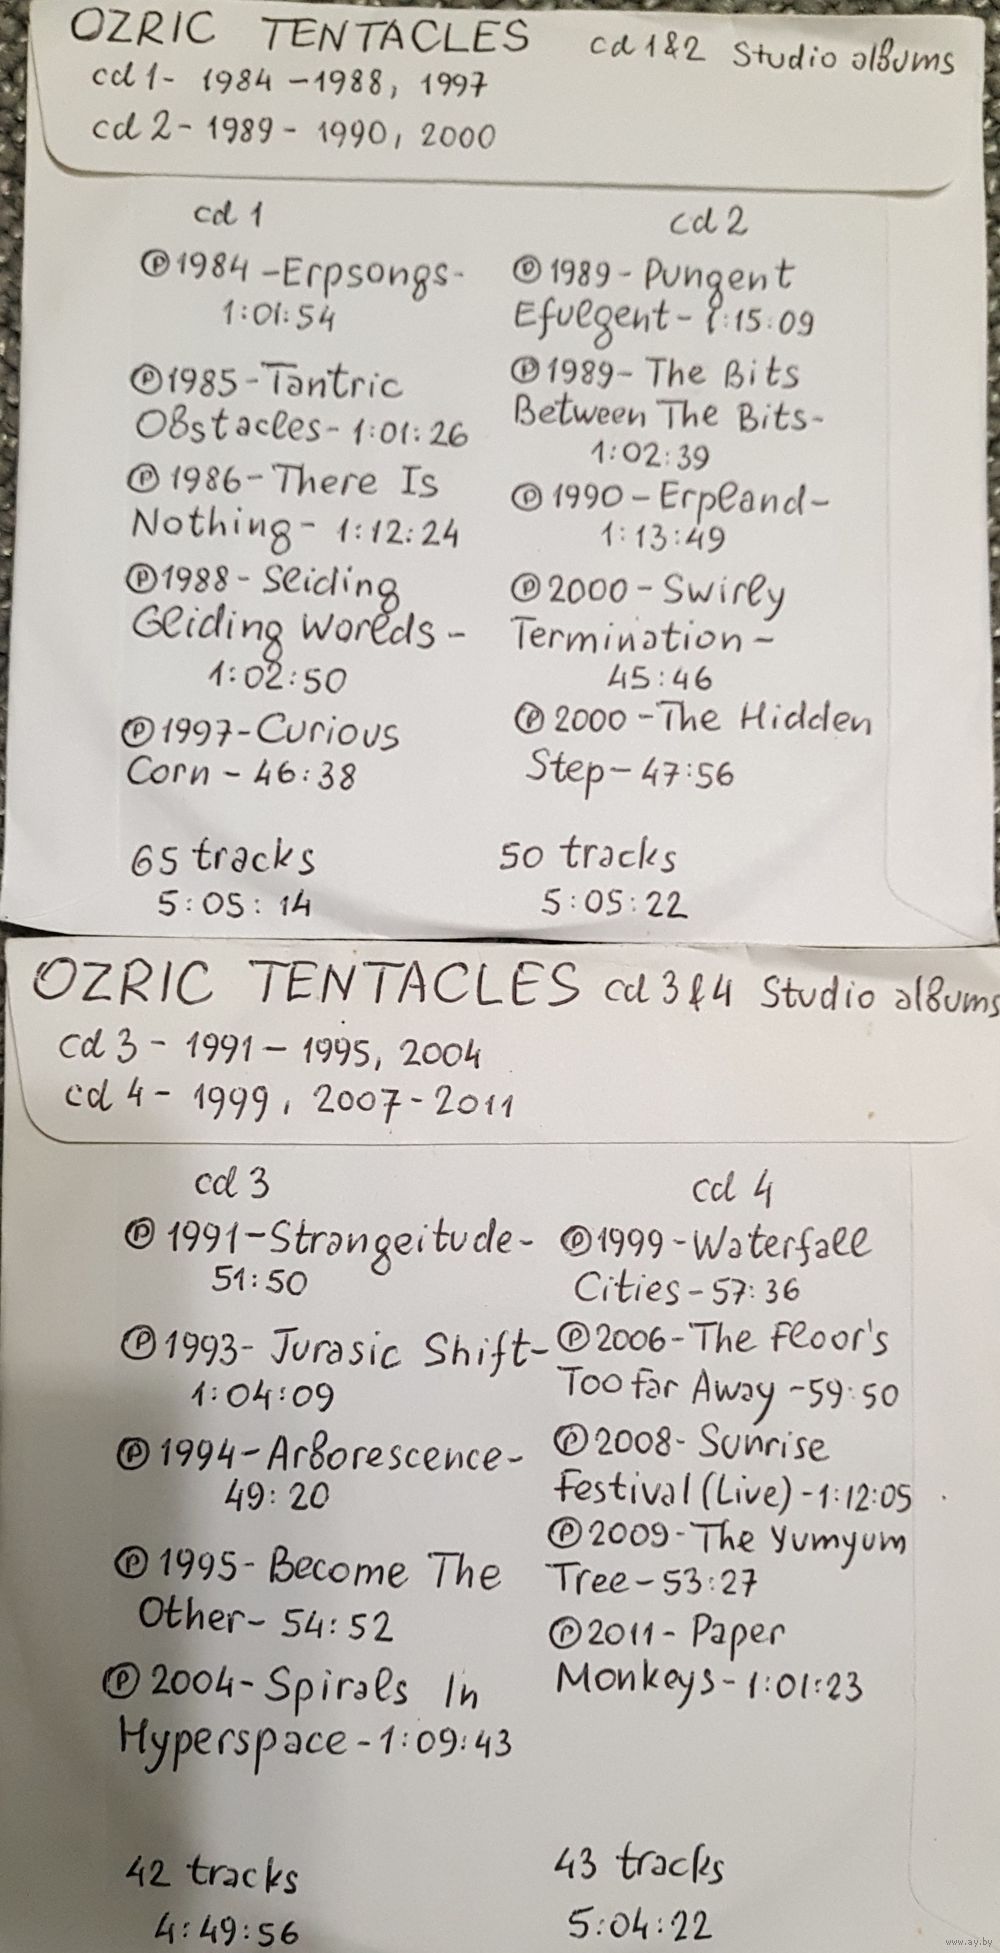 OZRIC TENTACLES cd 1&2 Studio albums
cd 1- 1984 - 1988, 1997
cd 2 - 1989 - 1990, 2000
cd 1
℗1984 - Erpsongs-
1:01:54
℗1985 - Tantric
Obstacles - 1:01:26
℗1986 - There Is
Nothing - 1:12:24
℗1988 - Sliding
Gliding Worlds -
1:02:50
℗1997 - Curious
Corn - 46:38
65 tracks
5:05:14
cd 2
℗1989 - Pungent
Efulgent - 1:15:09
℗1989 - The Bits
Between The Bits-
1:02:39
℗1990 - Erpland-
1:13:49
℗2000 - Swirly
Termination -
45:46
℗2000 - The Hidden
Step - 47:56
50 tracks
5:05:22
OZRIC TENTACLES cd 3&4 Studio albums
cd 3 - 1991 - 1995, 2004
cd 4 - 1999, 2007 - 2011
cd 3
℗1991 - Strangeitude-
51:50
℗1993 - Jurasic Shift-
1:04:09
℗1994 - Arborescence-
49:20
℗1995 - Become The
Other - 54:52
℗2004 - Spirals In
Hyperspace - 1:09:43
42 tracks
4:49:56
cd 4
℗1999 - Waterfall
Cities - 57:36
℗2006 - The Floor's
Too far Away - 59:50
℗2008 - Sunrise
Festival (Live) - 1:12:05
℗2009 - The Yumyum
Tree - 53:27
℗2011 - Paper
Monkeys - 1:01:23
43 tracks
5:04:22
www.ay.by